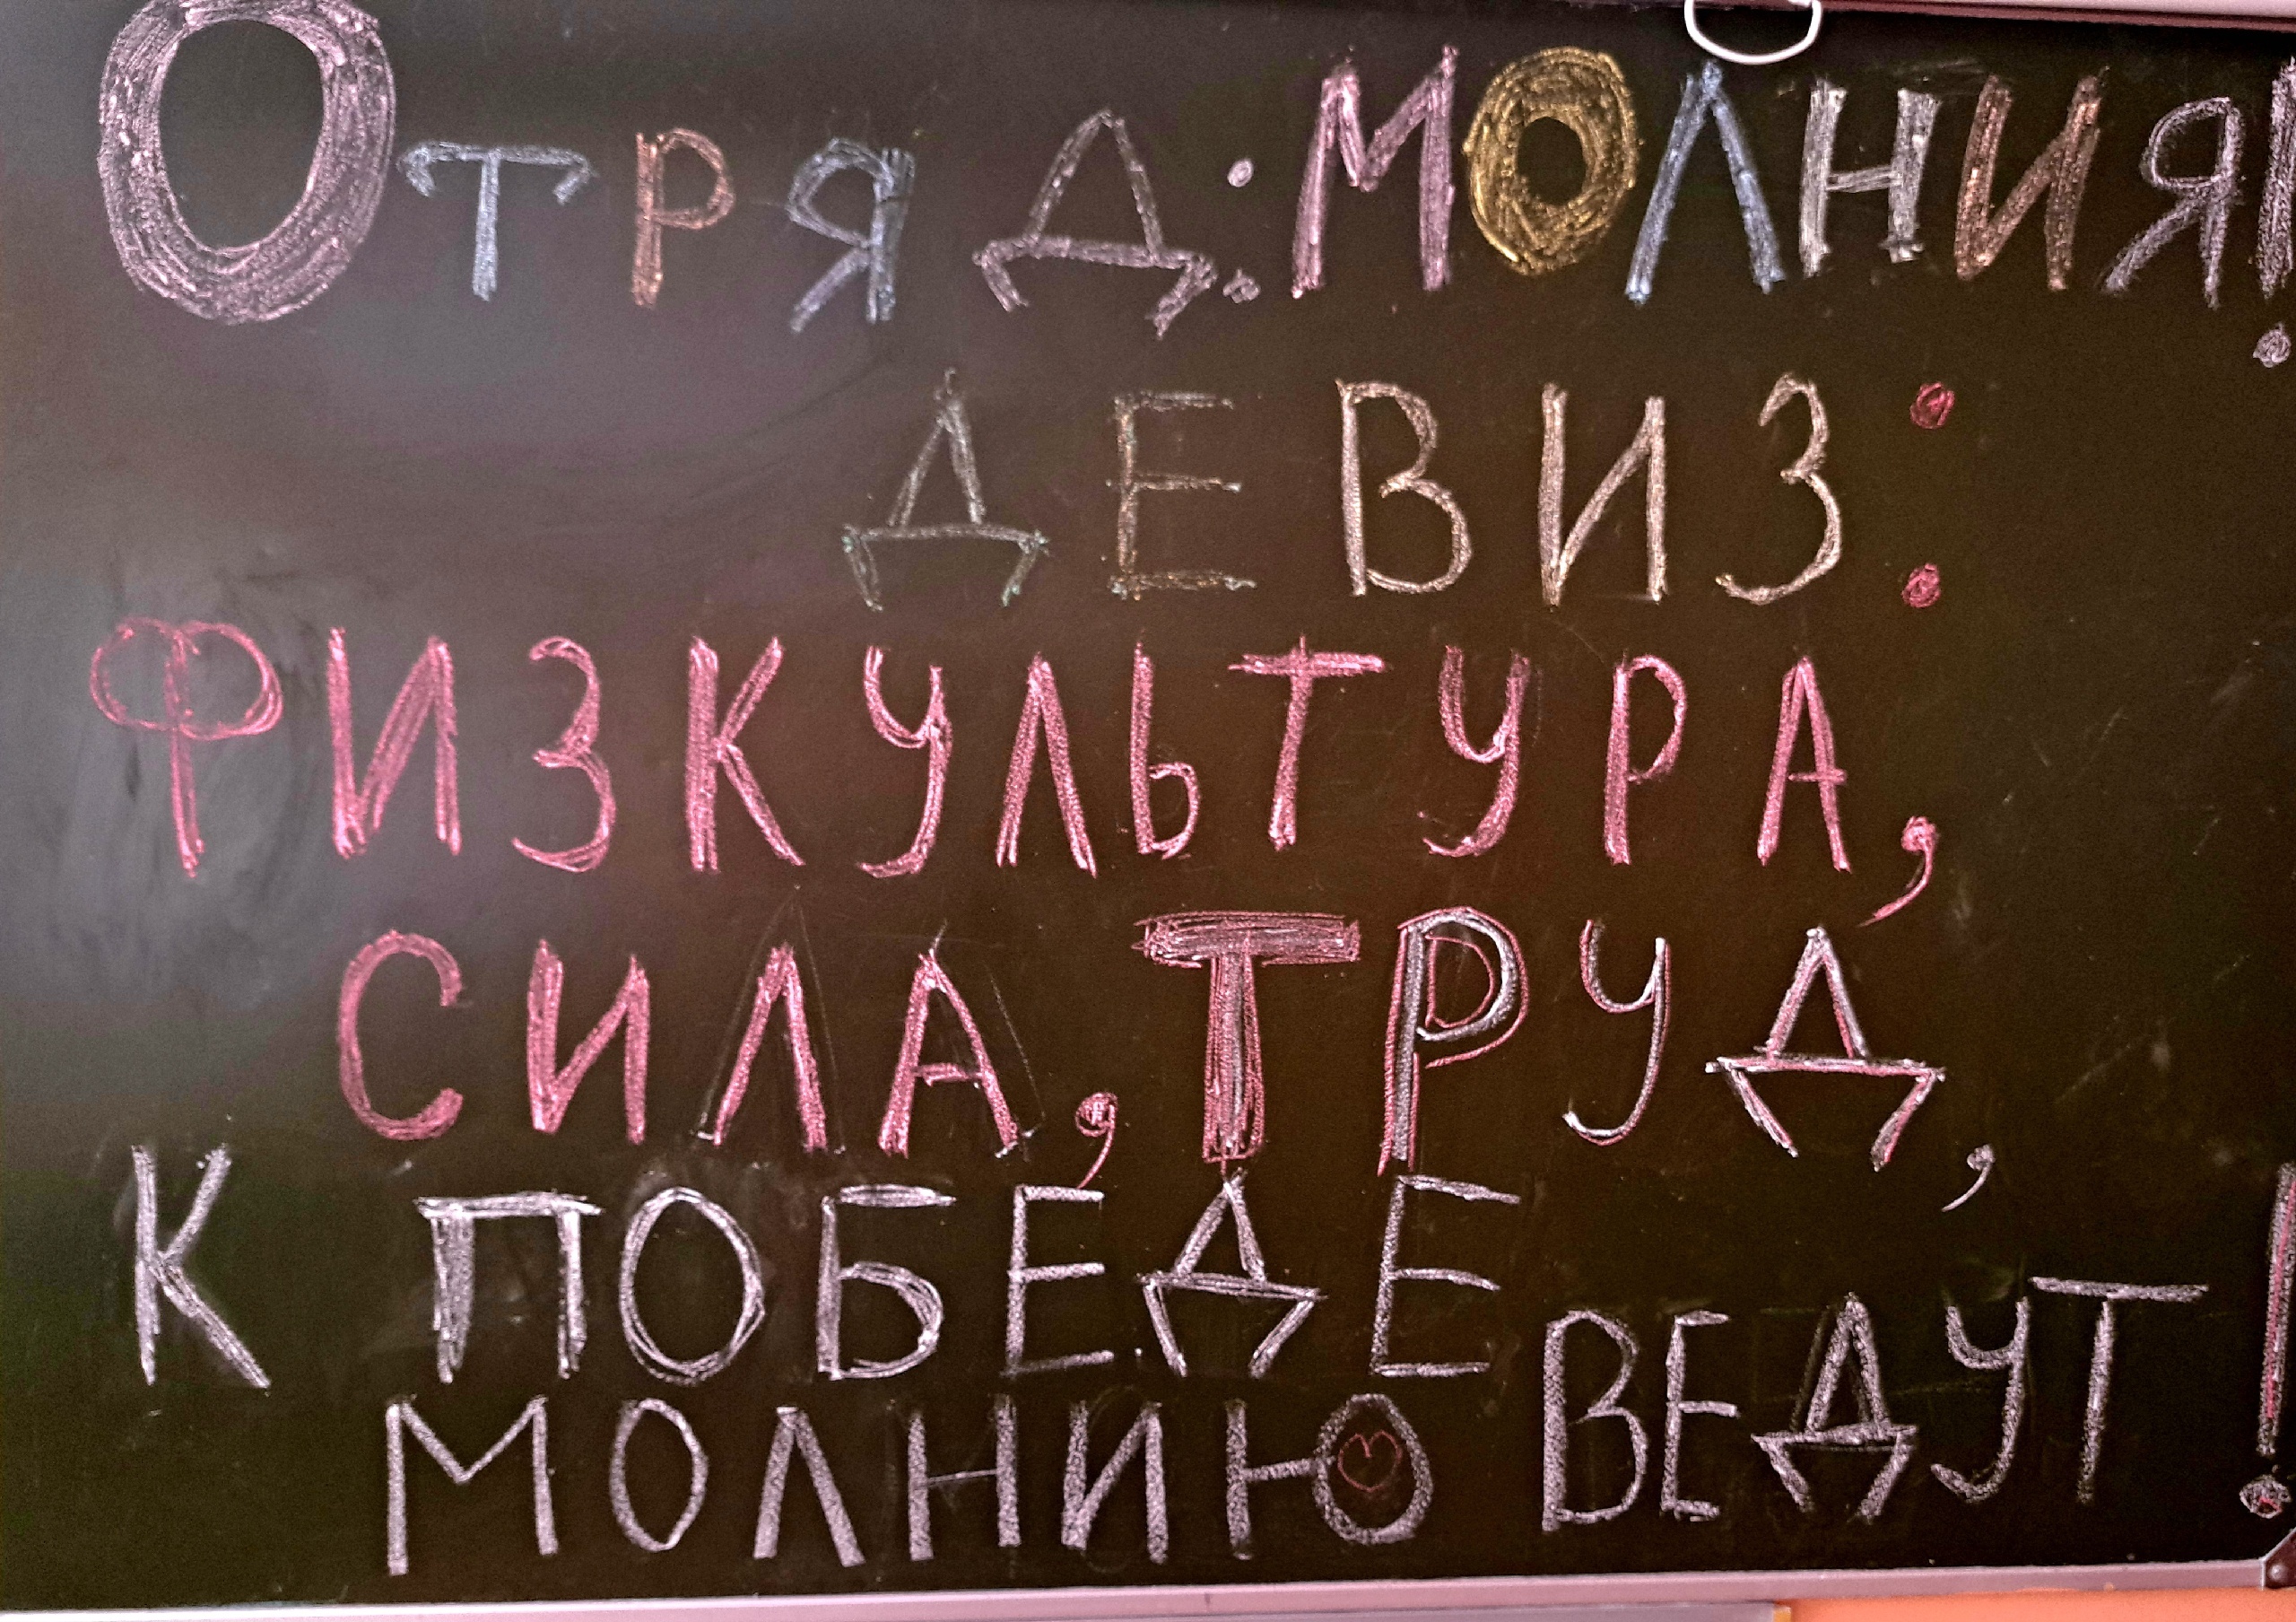 Отряд: МОЛНИЯ!
ДЕВИЗ:
ФИЗКУЛЬТУРА,
СИЛА, ТРУД,
К ПОБЕДЕ
МОЛНИЮ ВЕДУТ!